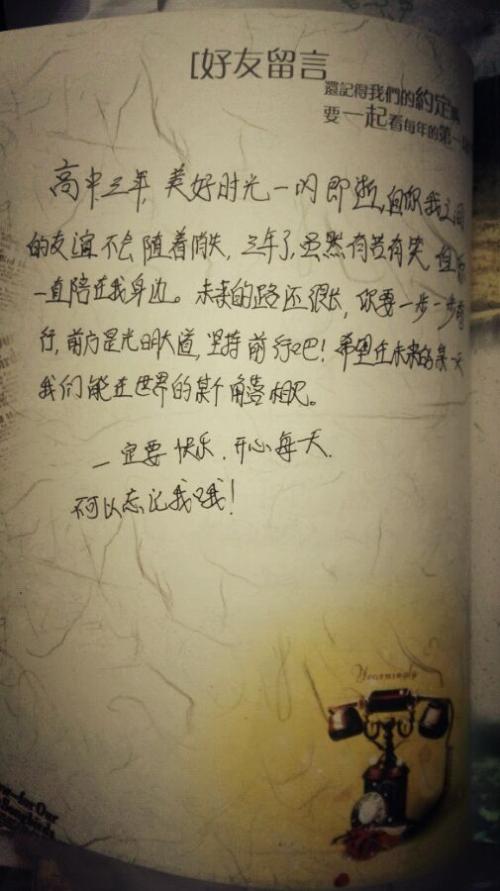 [好友留言
還記得我們的約定
要一起看每年的第一
高中三年，美好时光一闪即逝，但你我之间
的友谊不会随着消失，三年了，虽然有苦有笑，但
一直陪在我身边。未来的路还很长，你要一步一步前
行，前方是光明大道，坚持前行吧！希望在未来的某一天
我们能在世界的某个角落相见。
一定要快乐．开心每天．
不可以忘记我哦！
Yearningly
for Our
Songbirds